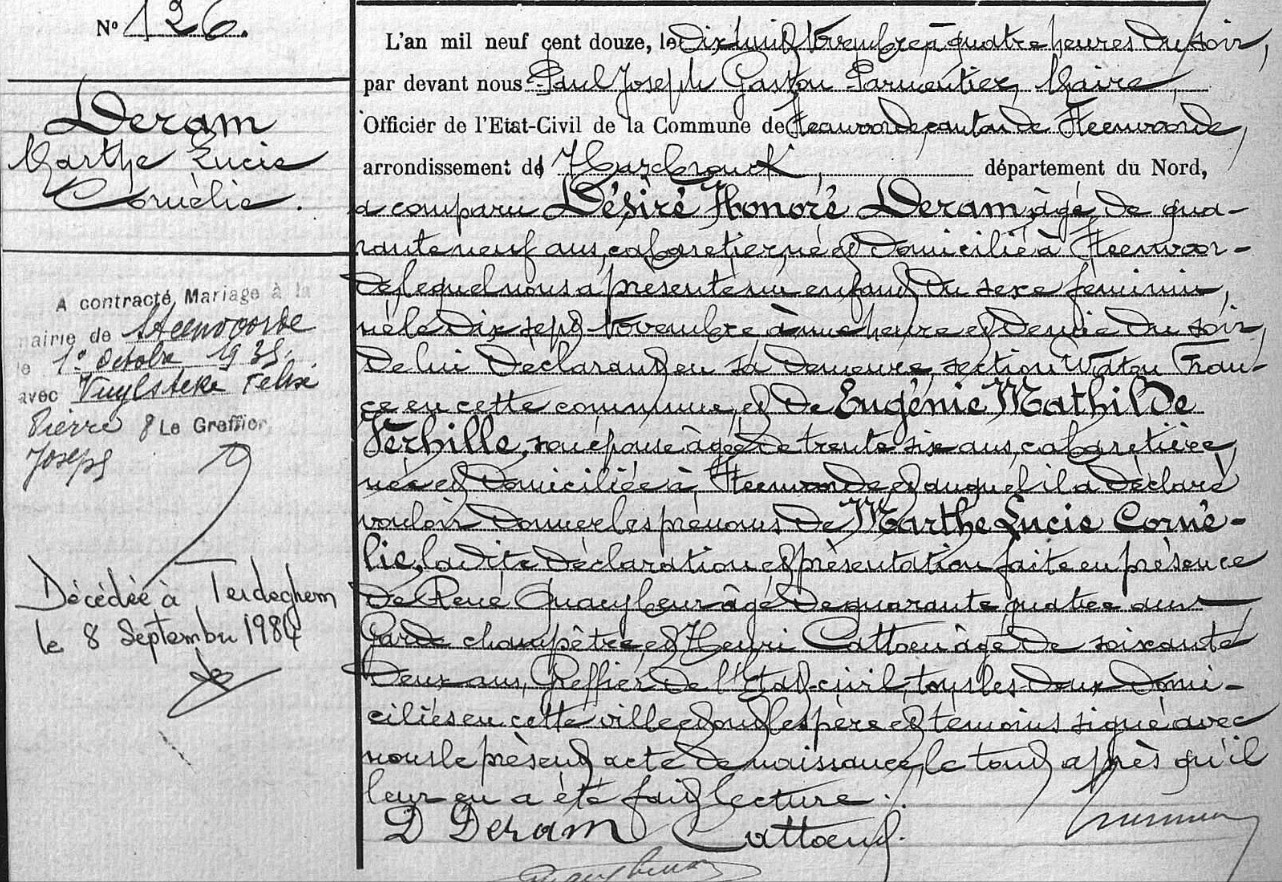 N° 126.
Deram
Marthe Lucie
Cornélie.
A contracté Mariage à la
mairie de Steenvoorde
le 1er octobre 1935
avec Vuylsteke Félix
Pierre & Le Greffier,
Joseph
Décédée à Terdeghem
le 8 Septembre 1984
L'an mil neuf cent douze, le dix huit Novembre à quatre heures du soir,
par devant nous Paul Joseph Gaston Parmentier, Maire,
Officier de l'Etat-Civil de la Commune de Steenvoorde, canton de Steenvoorde,
arrondissement d' Hazebrouck, département du Nord,
a comparu Désiré Honoré Deram, âgé de qua-
rante neuf ans, cabaretier, né et domicilié à Steenvoor-
de, lequel nous a présenté un enfant du sexe féminin,
né le dix sept Novembre à une heure et demie du soir,
de lui déclarant en sa demeure, section Watou Fran-
ce en cette commune, et de Eugénie Mathilde
Verhille, son épouse âgée de trente six ans, cabaretière,
née et domiciliée à Steenvoorde, et auquel il a déclaré
vouloir donner les prénoms de Marthe Lucie Corné-
lie, ladite déclaration et présentation faite en présence
de René Quaeybeur âgé de quarante quatre ans
Garde champêtre et Henri Cattoen âgé de soixante
deux ans, Greffier de l'Etat-civil, tous les deux domi-
ciliés en cette ville et ont les père et témoins signé avec
nous le présent acte de naissance, le tout après qu'il
leur en a été fait lecture.
D Deram Cattoen